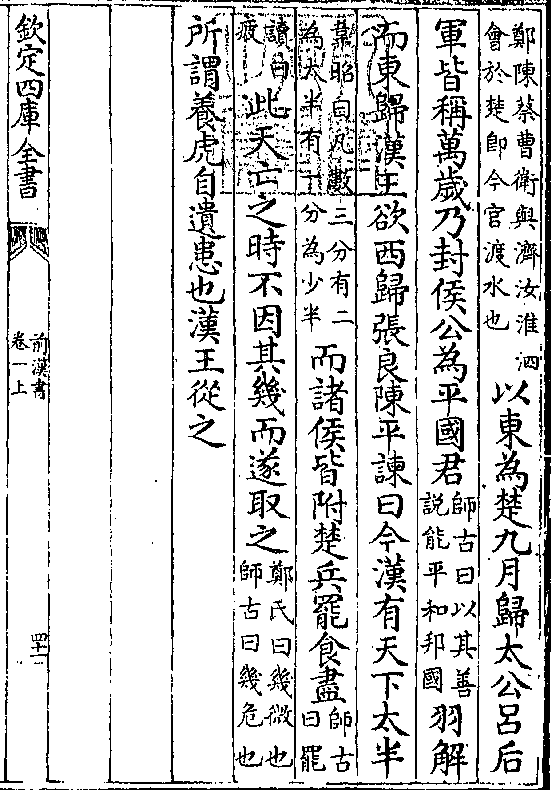 鄭陳蔡曹衛與濟汝淮泗會於楚即今官渡水也以東為楚九月歸太公呂后
軍皆稱萬歲乃封侯公為平國君師古曰以其善說能平和邦國羽解
而東歸漢王欲西歸張良陳平諫曰今漢有天下太半
韋昭曰凡數三分有二為太半有一分為少半而諸侯皆附楚兵罷食盡師古曰罷
讀曰疲此天亡之時不因其幾而遂取之鄭氏曰幾微也師古曰幾危也
所謂養虎自遺患也漢王從之
欽定四庫全書
前漢書
卷一上